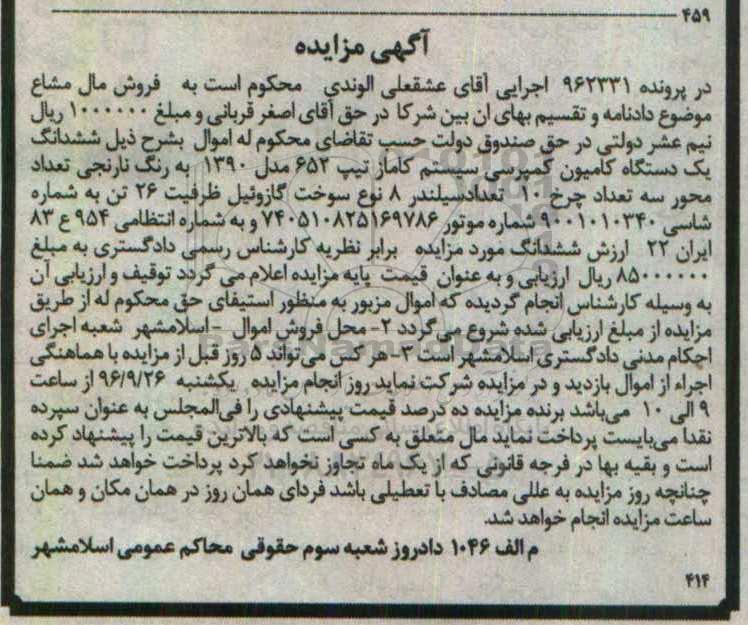 ۴۵۹
آگهی مزایده
در پرونده ۹۶۲۳۳۱ اجرایی آقای عشقعلی الوندی محکوم است به فروش مال مشاع
موضوع دادنامه و تقسیم بهای ان بین شرکا در حق آقای اصغر قربانی و مبلغ ۱۰۰۰۰۰۰ ریال
نیم عشر دولتی در حق صندوق دولت حسب تقاضای محکوم له اموال بشرح ذیل ششدانگ
یک دستگاه کامیون کمپرسی سیستم کاماز تیپ ۶۵۲ مدل ۱۳۹۰ به رنگ نارنجی تعداد
محور سه تعداد چرخ ۱۰ تعدادسیلندر ۸ نوع سوخت گازوئیل ظرفیت ۲۶ تن به شماره
شاسی ۹۰۰۱۰۱۰۳۴۰ شماره موتور ۷۴۰۵۱۰۸۲۵۱۶۹۷۸۶ و به شماره انتظامی ۹۵۴ ع ۸۳
ایران ۲۲ ارزش ششدانگ مورد مزایده برابر نظریه کارشناس رسمی دادگستری به مبلغ
۸۵۰۰۰۰۰۰۰ ریال ارزیابی و به عنوان قیمت پایه مزایده اعلام می گردد توقیف و ارزیابی آن
به وسیله کارشناس انجام گردیده که اموال مزبور به منظور استیفای حق محکوم له از طریق
مزایده از مبلغ ارزیابی شده شروع می گردد ۲- محل فروش اموال -اسلامشهر شعبه اجرای
احکام مدنی دادگستری اسلامشهر است ۳-هر کس می تواند ۵ روز قبل از مزایده با هماهنگی
اجراء از اموال بازدید و در مزایده شرکت نماید روز انجام مزایده یکشنبه ۹۶/۹/۲۶ از ساعت
۹ الی ۱۰ می‌باشد برنده مزایده ده درصد قیمت پیشنهادی را فی‌المجلس به عنوان سپرده
نقدا می‌بایست پرداخت نماید مال متعلق به کسی است که بالاترین قیمت را پیشنهاد کرده
است و بقیه بها در فرجه قانونی که از یک ماه تجاوز نخواهد کرد پرداخت خواهد شد ضمنا
چنانچه روز مزایده به عللی مصادف با تعطیلی باشد فردای همان روز در همان مکان و همان
ساعت مزایده انجام خواهد شد.
م الف ۱۰۴۶ دادروز شعبه سوم حقوقی محاکم عمومی اسلامشهر
۴۱۴